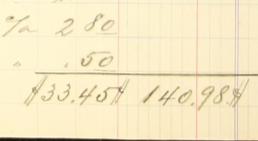 c/a 2 80
" .50
133.45 140.98